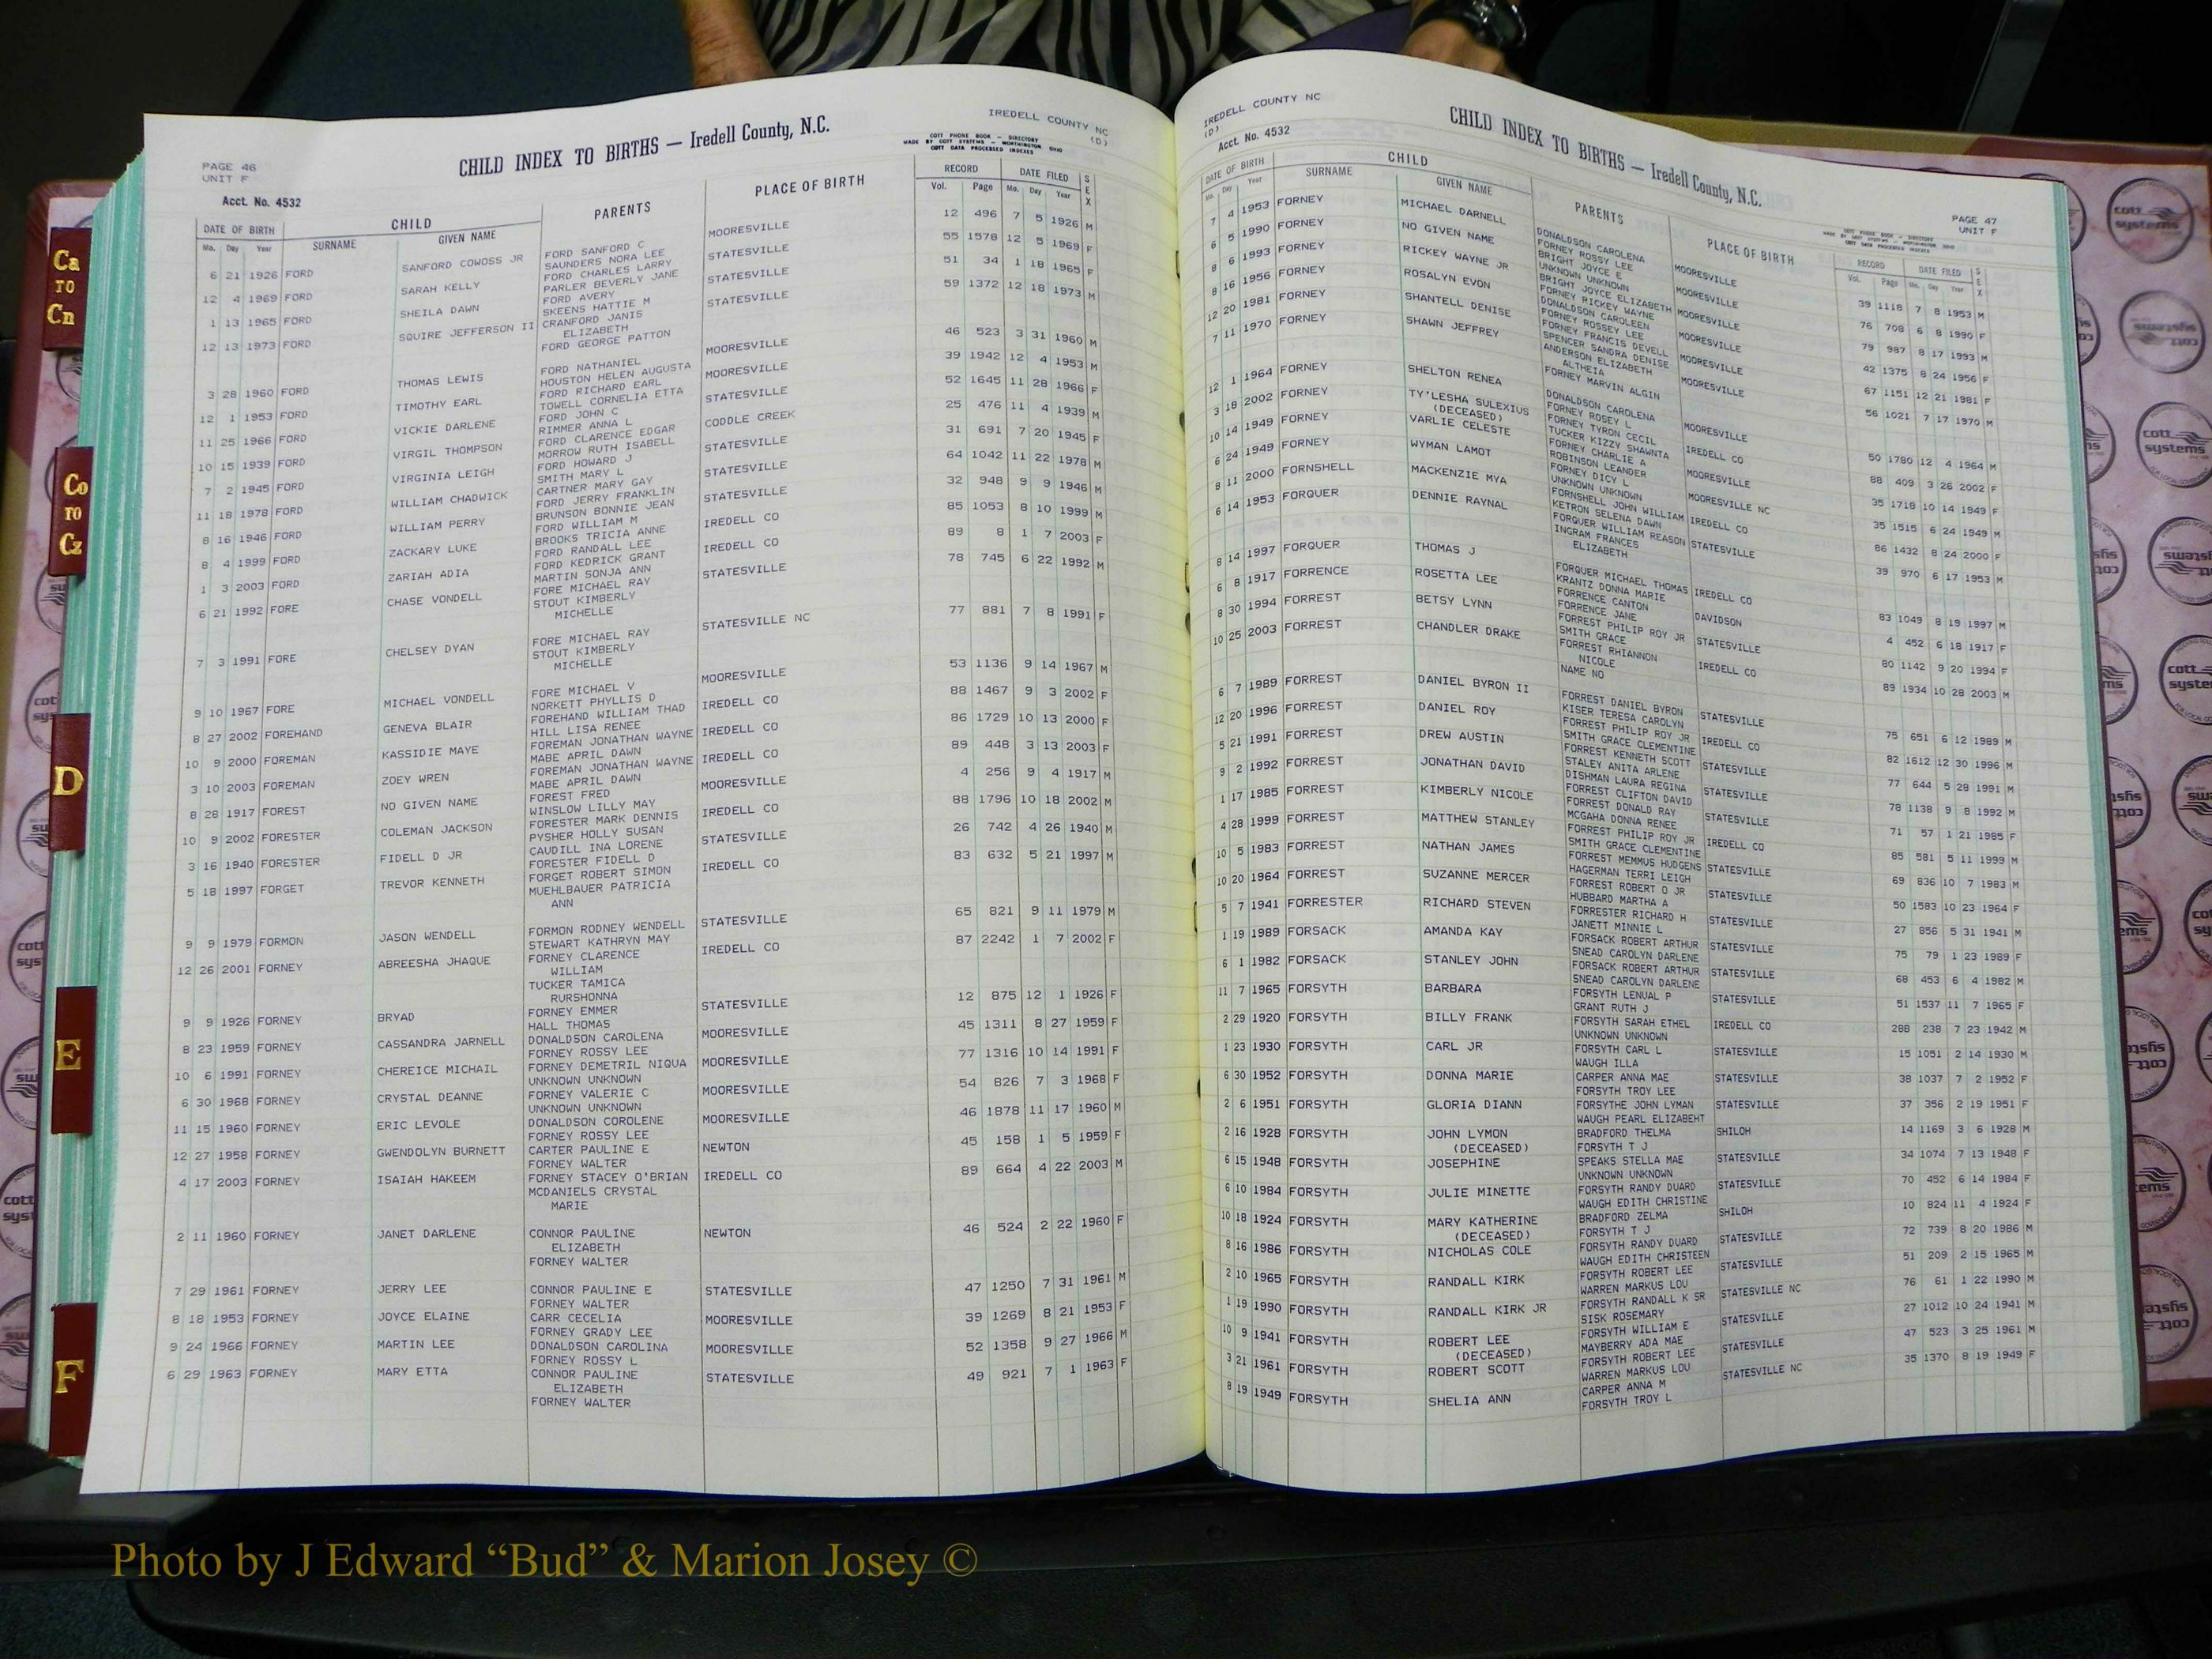 PAGE 46
UNIT F
Acct. No. 4532
CHILD INDEX TO BIRTHS — Iredell County, N.C.
COTT PHONE BOOK — DIRECTORY
MADE BY COTT SYSTEMS — WORTHINGTON, OHIO
COTT DATA PROCESSED INDEXES
IREDELL COUNTY NC
(D)
DATE OF BIRTH CHILD PARENTS PLACE OF BIRTH RECORD DATE FILED SEX
Mo. Day Year SURNAME GIVEN NAME Vol. Page Mo. Day Year
6 21 1926 FORD SANFORD COWOSS JR FORD SANFORD C MOORESVILLE 12 496 7 5 1926 M
SAUNDERS NORA LEE
12 4 1969 FORD SARAH KELLY FORD CHARLES LARRY STATESVILLE 55 1578 12 5 1969 F
PARLER BEVERLY JANE
1 13 1965 FORD SHEILA DAWN FORD AVERY STATESVILLE 51 34 1 18 1965 F
SKEENS HATTIE M
12 13 1973 FORD SQUIRE JEFFERSON II CRANFORD JANIS STATESVILLE 59 1372 12 18 1973 M
ELIZABETH
FORD GEORGE PATTON
3 28 1960 FORD THOMAS LEWIS FORD NATHANIEL MOORESVILLE 46 523 3 31 1960 M
HOUSTON HELEN AUGUSTA
12 1 1953 FORD TIMOTHY EARL FORD RICHARD EARL MOORESVILLE 39 1942 12 4 1953 M
TOWELL CORNELIA ETTA
11 25 1966 FORD VICKIE DARLENE FORD JOHN C STATESVILLE 52 1645 11 28 1966 F
RIMMER ANNA L
10 15 1939 FORD VIRGIL THOMPSON FORD CLARENCE EDGAR CODDLE CREEK 25 476 11 4 1939 M
MORROW RUTH ISABELL
7 2 1945 FORD VIRGINIA LEIGH FORD HOWARD J STATESVILLE 31 691 7 20 1945 F
SMITH MARY L
11 18 1978 FORD WILLIAM CHADWICK CARTNER MARY GAY STATESVILLE 64 1042 11 22 1978 M
FORD JERRY FRANKLIN
8 16 1946 FORD WILLIAM PERRY BRUNSON BONNIE JEAN STATESVILLE 32 948 9 9 1946 M
FORD WILLIAM M
8 4 1999 FORD ZACKARY LUKE BROOKS TRICIA ANNE IREDELL CO 85 1053 8 10 1999 M
FORD RANDALL LEE
1 3 2003 FORD ZARIAH ADIA FORD KEDRICK GRANT IREDELL CO 89 8 1 7 2003 F
MARTIN SONJA ANN
6 21 1992 FORE CHASE VONDELL FORE MICHAEL RAY STATESVILLE 78 745 6 22 1992 M
STOUT KIMBERLY
MICHELLE
7 3 1991 FORE CHELSEY DYAN FORE MICHAEL RAY STATESVILLE NC 77 881 7 8 1991 F
STOUT KIMBERLY
MICHELLE
9 10 1967 FORE MICHAEL VONDELL FORE MICHAEL V MOORESVILLE 53 1136 9 14 1967 M
NORKETT PHYLLIS D
8 27 2002 FOREHAND GENEVA BLAIR FOREHAND WILLIAM THAD IREDELL CO 88 1467 9 3 2002 F
HILL LISA RENEE
10 9 2000 FOREMAN KASSIDIE MAYE FOREMAN JONATHAN WAYNE IREDELL CO 86 1729 10 13 2000 F
MABE APRIL DAWN
3 10 2003 FOREMAN ZOEY WREN FOREMAN JONATHAN WAYNE IREDELL CO 89 448 3 13 2003 F
MABE APRIL DAWN
8 28 1917 FOREST NO GIVEN NAME FOREST FRED MOORESVILLE 4 256 9 4 1917 M
WINSLOW LILLY MAY
10 9 2002 FORESTER COLEMAN JACKSON FORESTER MARK DENNIS IREDELL CO 88 1796 10 18 2002 M
PYSHER HOLLY SUSAN
3 16 1940 FORESTER FIDELL D JR CAUDILL INA LORENE STATESVILLE 26 742 4 26 1940 M
FORESTER FIDELL D
5 18 1997 FORGET TREVOR KENNETH FORGET ROBERT SIMON IREDELL CO 83 632 5 21 1997 M
MUEHLBAUER PATRICIA
ANN
9 9 1979 FORMON JASON WENDELL FORMON RODNEY WENDELL STATESVILLE 65 821 9 11 1979 M
STEWART KATHRYN MAY
12 26 2001 FORNEY ABREESHA JHAQUE FORNEY CLARENCE IREDELL CO 87 2242 1 7 2002 F
WILLIAM
TUCKER TAMICA
RURSHONNA
9 9 1926 FORNEY BRYAD FORNEY EMMER STATESVILLE 12 875 12 1 1926 F
HALL THOMAS
8 23 1959 FORNEY CASSANDRA JARNELL DONALDSON CAROLENA MOORESVILLE 45 1311 8 27 1959 F
FORNEY ROSSY LEE
10 6 1991 FORNEY CHEREICE MICHAIL FORNEY DEMETRIL NIQUA MOORESVILLE 77 1316 10 14 1991 F
UNKNOWN UNKNOWN
6 30 1968 FORNEY CRYSTAL DEANNE FORNEY VALERIE C MOORESVILLE 54 826 7 3 1968 F
UNKNOWN UNKNOWN
11 15 1960 FORNEY ERIC LEVOLE DONALDSON COROLENE MOORESVILLE 46 1878 11 17 1960 M
FORNEY ROSSY LEE
12 27 1958 FORNEY GWENDOLYN BURNETT CARTER PAULINE E NEWTON 45 158 1 5 1959 F
FORNEY WALTER
4 17 2003 FORNEY ISAIAH HAKEEM FORNEY STACEY O'BRIAN IREDELL CO 89 664 4 22 2003 M
MCDANIELS CRYSTAL
MARIE
2 11 1960 FORNEY JANET DARLENE CONNOR PAULINE NEWTON 46 524 2 22 1960 F
ELIZABETH
FORNEY WALTER
7 29 1961 FORNEY JERRY LEE CONNOR PAULINE E STATESVILLE 47 1250 7 31 1961 M
FORNEY WALTER
8 18 1953 FORNEY JOYCE ELAINE CARR CECELIA MOORESVILLE 39 1269 8 21 1953 F
FORNEY GRADY LEE
9 24 1966 FORNEY MARTIN LEE DONALDSON CAROLINA MOORESVILLE 52 1358 9 27 1966 M
FORNEY ROSSY L
6 29 1963 FORNEY MARY ETTA CONNOR PAULINE STATESVILLE 49 921 7 1 1963 F
ELIZABETH
FORNEY WALTER
IREDELL COUNTY NC
(D)
Acct. No. 4532
CHILD INDEX TO BIRTHS — Iredell County, N.C.
PAGE 47
UNIT F
DATE OF BIRTH CHILD PARENTS PLACE OF BIRTH RECORD DATE FILED SEX
Mo. Day Year SURNAME GIVEN NAME Vol. Page Mo. Day Year
7 4 1953 FORNEY MICHAEL DARNELL DONALDSON CAROLENA MOORESVILLE 39 1118 7 8 1953 M
FORNEY ROSSY LEE
6 5 1990 FORNEY NO GIVEN NAME BRIGHT JOYCE E MOORESVILLE 76 708 6 8 1990 F
UNKNOWN UNKNOWN
8 6 1993 FORNEY RICKEY WAYNE JR BRIGHT JOYCE ELIZABETH MOORESVILLE 79 987 8 17 1993 M
FORNEY RICKEY WAYNE
8 16 1956 FORNEY ROSALYN EVON DONALDSON CAROLEEN MOORESVILLE 42 1375 8 24 1956 F
FORNEY ROSSEY LEE
12 20 1981 FORNEY SHANTELL DENISE FORNEY FRANCIS DEVELL MOORESVILLE 67 1151 12 21 1981 F
SPENCER SANDRA DENISE
7 11 1970 FORNEY SHAWN JEFFREY ANDERSON ELIZABETH MOORESVILLE 56 1021 7 17 1970 M
ALTHEIA
FORNEY MARVIN ALGIN
12 1 1964 FORNEY SHELTON RENEA DONALDSON CAROLENA MOORESVILLE 50 1780 12 4 1964 M
FORNEY ROSEY L
3 18 2002 FORNEY TY'LESHA SULEXIUS FORNEY TYRON CECIL IREDELL CO 88 409 3 26 2002 F
(DECEASED) TUCKER KIZZY SHAWNTA
10 14 1949 FORNEY VARLIE CELESTE FORNEY CHARLIE A MOORESVILLE 35 1718 10 14 1949 F
ROBINSON LEANDER
6 24 1949 FORNEY WYMAN LAMOT FORNEY DICY L MOORESVILLE NC 35 1515 6 24 1949 M
UNKNOWN UNKNOWN
8 11 2000 FORNSHELL MACKENZIE MYA FORNSHELL JOHN WILLIAM IREDELL CO 86 1432 8 24 2000 F
KETRON SELENA DAWN
6 14 1953 FORQUER DENNIE RAYNAL FORQUER WILLIAM REASON STATESVILLE 39 970 6 17 1953 M
INGRAM FRANCES
ELIZABETH
8 14 1997 FORQUER THOMAS J FORQUER MICHAEL THOMAS IREDELL CO 83 1049 8 19 1997 M
KRANTZ DONNA MARIE
6 8 1917 FORRENCE ROSETTA LEE FORRENCE CANTON DAVIDSON 4 452 6 18 1917 F
FORRENCE JANE
8 30 1994 FORREST BETSY LYNN FORREST PHILIP ROY JR STATESVILLE 80 1142 9 20 1994 F
SMITH GRACE
10 25 2003 FORREST CHANDLER DRAKE FORREST RHIANNON IREDELL CO 89 1934 10 28 2003 M
NICOLE
NAME NO
6 7 1989 FORREST DANIEL BYRON II FORREST DANIEL BYRON STATESVILLE 75 651 6 12 1989 M
KISER TERESA CAROLYN
12 20 1996 FORREST DANIEL ROY FORREST PHILIP ROY JR IREDELL CO 82 1612 12 30 1996 M
SMITH GRACE CLEMENTINE
5 21 1991 FORREST DREW AUSTIN FORREST KENNETH SCOTT STATESVILLE 77 644 5 28 1991 M
STALEY ANITA ARLENE
9 2 1992 FORREST JONATHAN DAVID DISHMAN LAURA REGINA STATESVILLE 78 1138 9 8 1992 M
FORREST CLIFTON DAVID
1 17 1985 FORREST KIMBERLY NICOLE FORREST DONALD RAY STATESVILLE 71 57 1 21 1985 F
MCGAHA DONNA RENEE
4 28 1999 FORREST MATTHEW STANLEY FORREST PHILIP ROY JR IREDELL CO 85 581 5 11 1999 M
SMITH GRACE CLEMENTINE
10 5 1983 FORREST NATHAN JAMES FORREST MEMMUS HUDGENS STATESVILLE 69 836 10 7 1983 M
HAGERMAN TERRI LEIGH
10 20 1964 FORREST SUZANNE MERCER FORREST ROBERT O JR STATESVILLE 50 1583 10 23 1964 F
HUBBARD MARTHA A
5 7 1941 FORRESTER RICHARD STEVEN FORRESTER RICHARD H STATESVILLE 27 856 5 31 1941 M
JANETT MINNIE L
1 19 1989 FORSACK AMANDA KAY FORSACK ROBERT ARTHUR STATESVILLE 75 79 1 23 1989 F
SNEAD CAROLYN DARLENE
6 1 1982 FORSACK STANLEY JOHN FORSACK ROBERT ARTHUR STATESVILLE 68 453 6 4 1982 M
SNEAD CAROLYN DARLENE
11 7 1965 FORSYTH BARBARA FORSYTH LENUAL P STATESVILLE 51 1537 11 7 1965 F
GRANT RUTH J
2 29 1920 FORSYTH BILLY FRANK FORSYTH SARAH ETHEL IREDELL CO 28B 238 7 23 1942 M
UNKNOWN UNKNOWN
1 23 1930 FORSYTH CARL JR FORSYTH CARL L STATESVILLE 15 1051 2 14 1930 M
WAUGH ILLA
6 30 1952 FORSYTH DONNA MARIE CARPER ANNA MAE STATESVILLE 38 1037 7 2 1952 F
FORSYTH TROY LEE
2 6 1951 FORSYTH GLORIA DIANN FORSYTHE JOHN LYMAN STATESVILLE 37 356 2 19 1951 F
WAUGH PEARL ELIZABEHT
2 16 1928 FORSYTH JOHN LYMON BRADFORD THELMA SHILOH 14 1169 3 6 1928 M
(DECEASED) FORSYTH T J
6 15 1948 FORSYTH JOSEPHINE SPEAKS STELLA MAE STATESVILLE 34 1074 7 13 1948 F
UNKNOWN UNKNOWN
6 10 1984 FORSYTH JULIE MINETTE FORSYTH RANDY DUARD STATESVILLE 70 452 6 14 1984 F
WAUGH EDITH CHRISTINE
10 18 1924 FORSYTH MARY KATHERINE BRADFORD ZELMA SHILOH 10 824 11 4 1924 F
(DECEASED) FORSYTH T J
8 16 1986 FORSYTH NICHOLAS COLE FORSYTH RANDY DUARD STATESVILLE 72 739 8 20 1986 M
WAUGH EDITH CHRISTEEN
2 10 1965 FORSYTH RANDALL KIRK FORSYTH ROBERT LEE STATESVILLE 51 209 2 15 1965 M
WARREN MARKUS LOU
1 19 1990 FORSYTH RANDALL KIRK JR FORSYTH RANDALL K SR STATESVILLE NC 76 61 1 22 1990 M
SISK ROSEMARY
10 9 1941 FORSYTH ROBERT LEE FORSYTH WILLIAM E STATESVILLE 27 1012 10 24 1941 M
(DECEASED) MAYBERRY ADA MAE
3 21 1961 FORSYTH ROBERT SCOTT FORSYTH ROBERT LEE STATESVILLE 47 523 3 25 1961 M
WARREN MARKUS LOU
8 19 1949 FORSYTH SHELIA ANN CARPER ANNA M STATESVILLE NC 35 1370 8 19 1949 F
FORSYTH TROY L
Ca
TO
Cn
Co
TO
Cz
D
E
F
cott
systems
Photo by J Edward “Bud” & Marion Josey ©